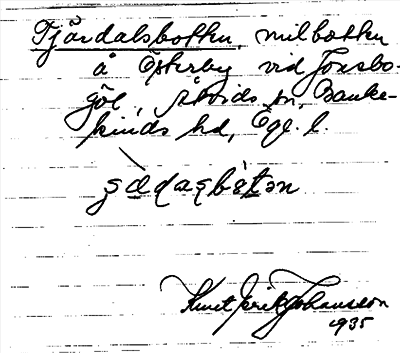 Fjärdalsbotten, milbotten
å Österby vid Fonsbo-
göl, Åtvids sn, Banke-
kinds hd, Ögl. l.
Knut Erik Johansson
1935